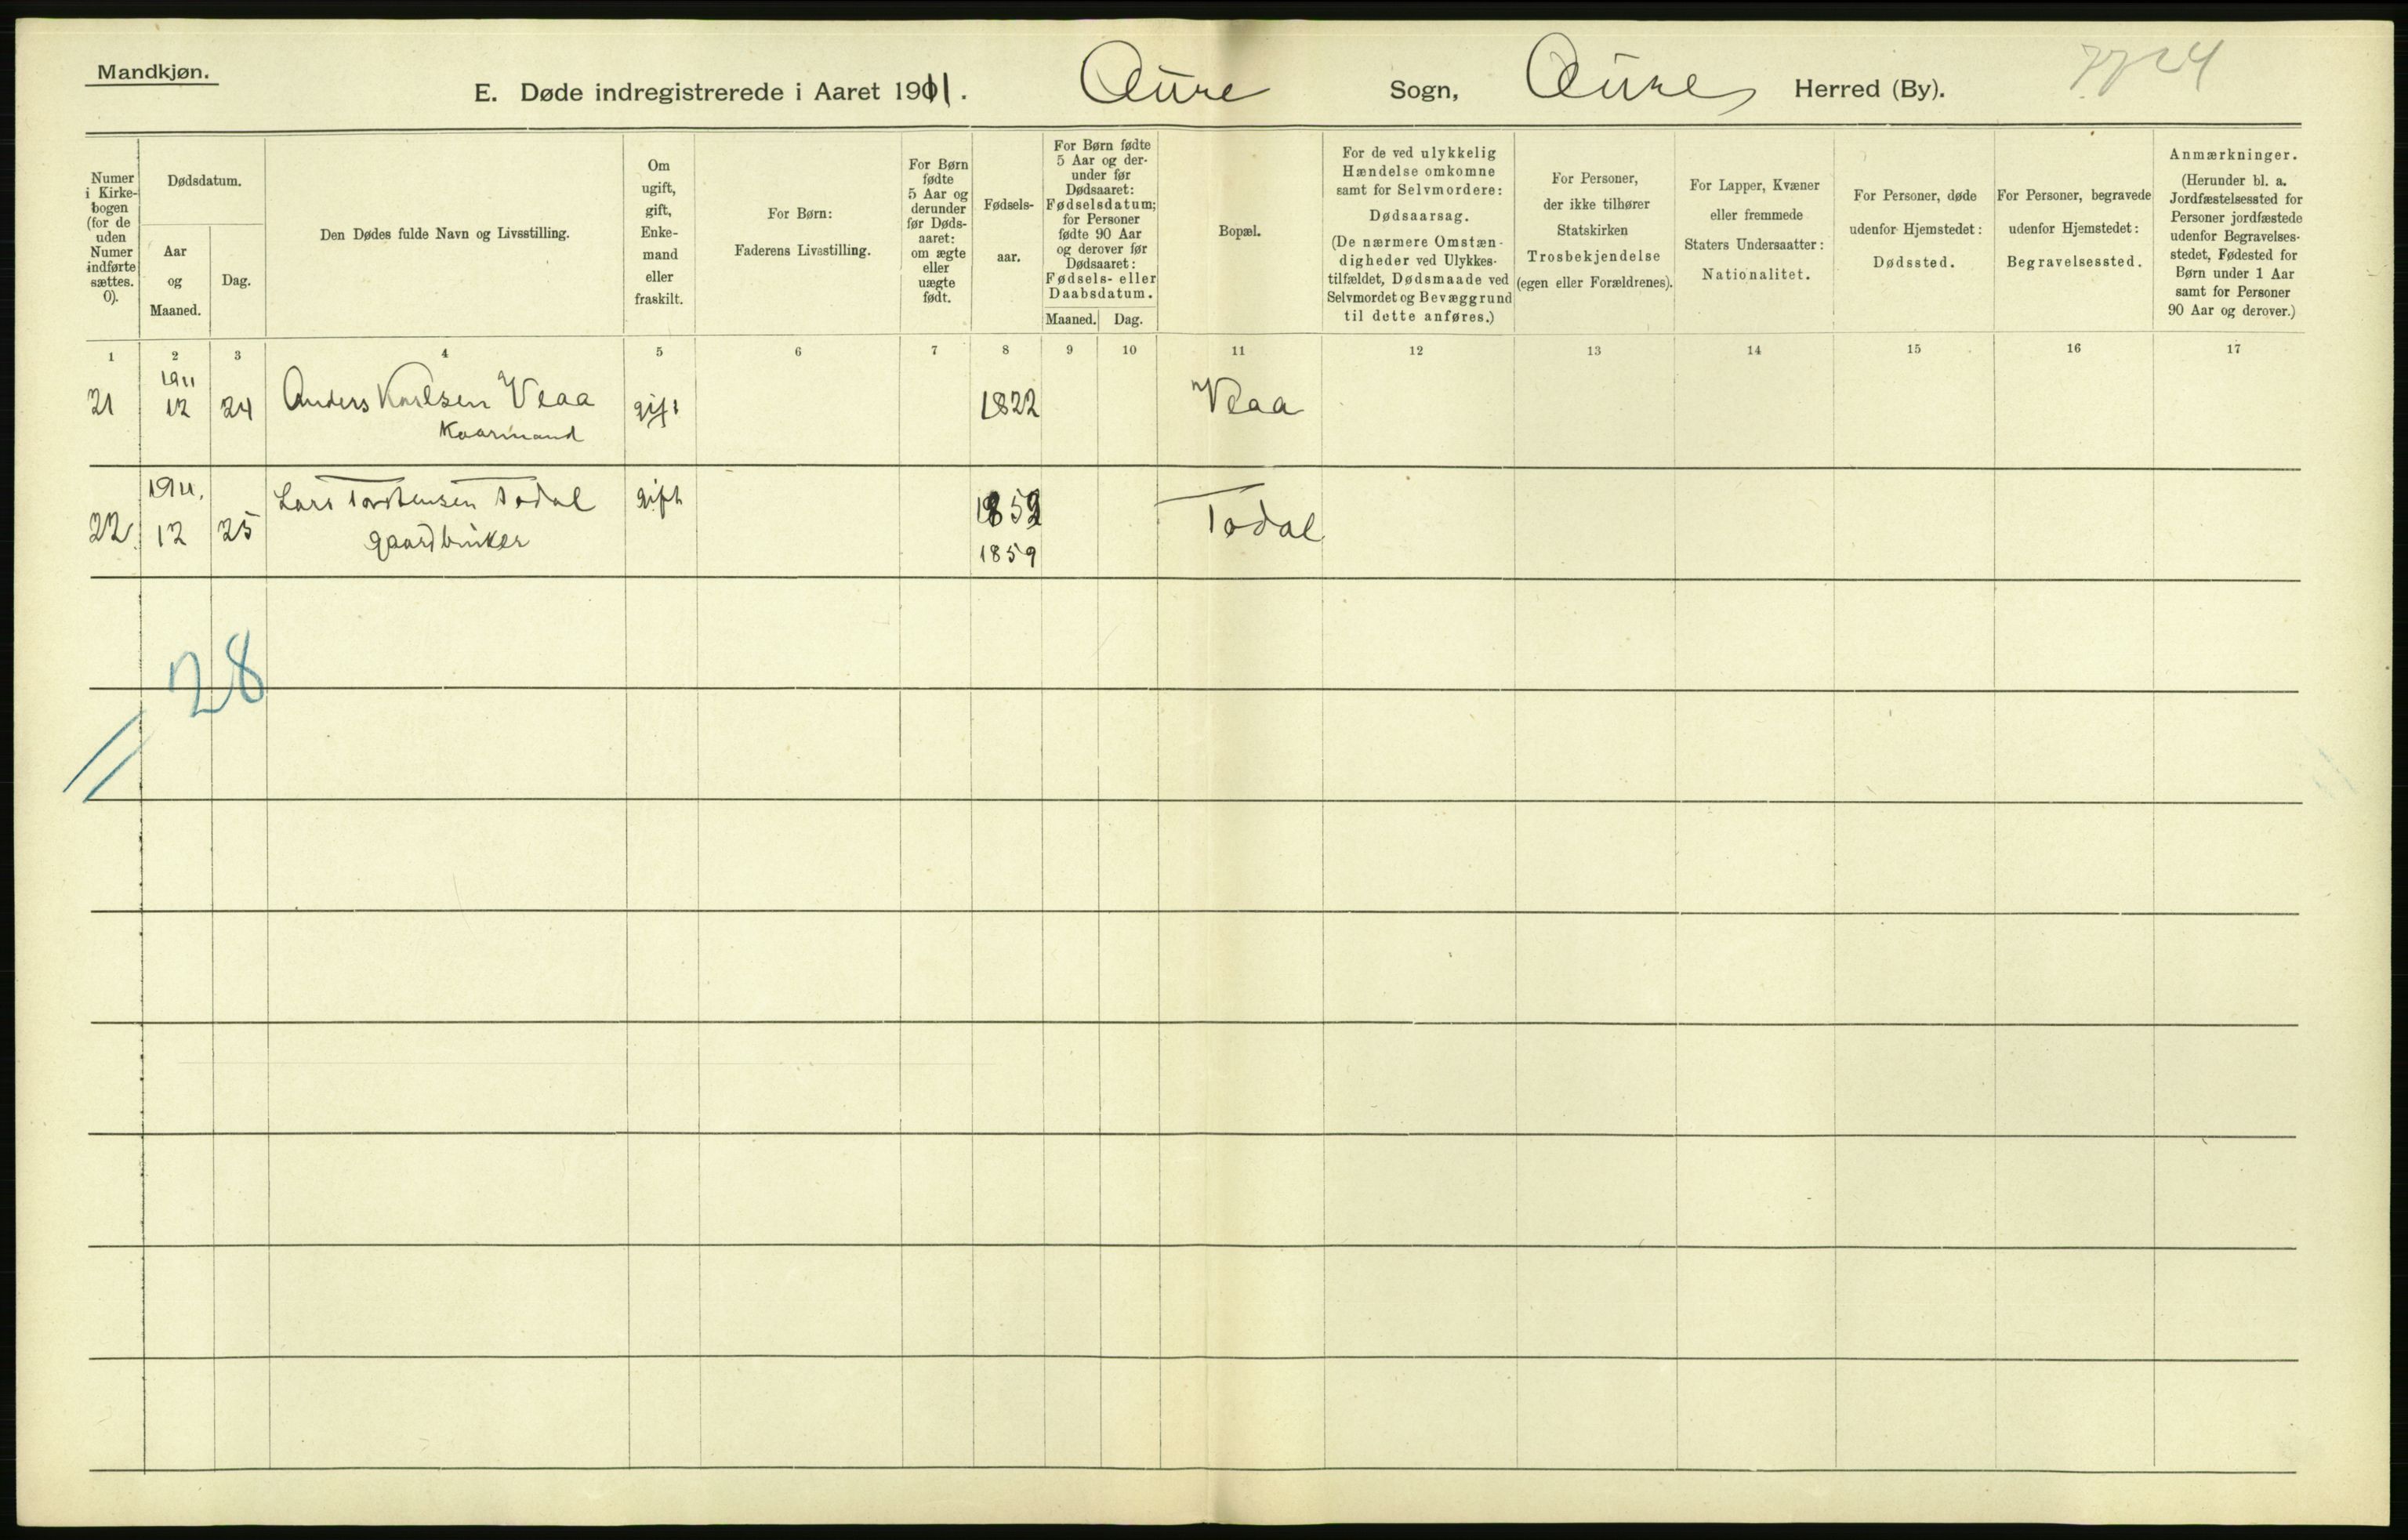 Mandkjøn.
E. Døde indregistrerede i Aaret 1911. Aure Sogn, Aure Herred (By).
Numer i Kirke-bogen (for de uden Numer indførte sættes. 0).
Dødsdatum.
Aar og Maaned.
Dag.
Den Dødes fulde Navn og Livsstilling.
Om ugift, gift, Enke-mand eller fraskilt.
For Børn:
Faderens Livsstilling.
For Børn fødte 5 Aar og derunder før Døds-aaret: om ægte eller uægte født.
Fødsels-aar.
For Børn fødte 5 Aar og der-under før Dødsaaret: Fødselsdatum; for Personer fødte 90 Aar og derover før Dødsaaret: Fødsels- eller Daabsdatum.
Maaned. Dag.
Bopæl.
For de ved ulykkelig Hændelse omkomne samt for Selvmordere:
Dødsaarsag.
(De nærmere Omstæn-digheder ved Ulykkes-tilfældet, Dødsmaade ved Selvmordet og Bevæggrund til dette anføres.)
For Personer, der ikke tilhører Statskirken
Trosbekjendelse
(egen eller Forældrenes).
For Lapper, Kvæner eller fremmede Staters Undersaatter:
Nationalitet.
For Personer, døde udenfor Hjemstedet:
Dødssted.
For Personer, begravede udenfor Hjemstedet:
Begravelsessted.
Anmærkninger.
(Herunder bl. a. Jordfæstelsessted for Personer jordfæstede udenfor Begravelses-stedet, Fødested for Børn under 1 Aar samt for Personer 90 Aar og derover.)
1 2 3 4 5 6 7 8 9 10 11 12 13 14 15 16 17
1911
21 12 24 Anders Karlsen Vlaa gift 1822 Vlaa
Kaarmand
1911.
22. 12 25 Lars Torstensen Todal gift 1859 Todal
gaardbruker 1859
28